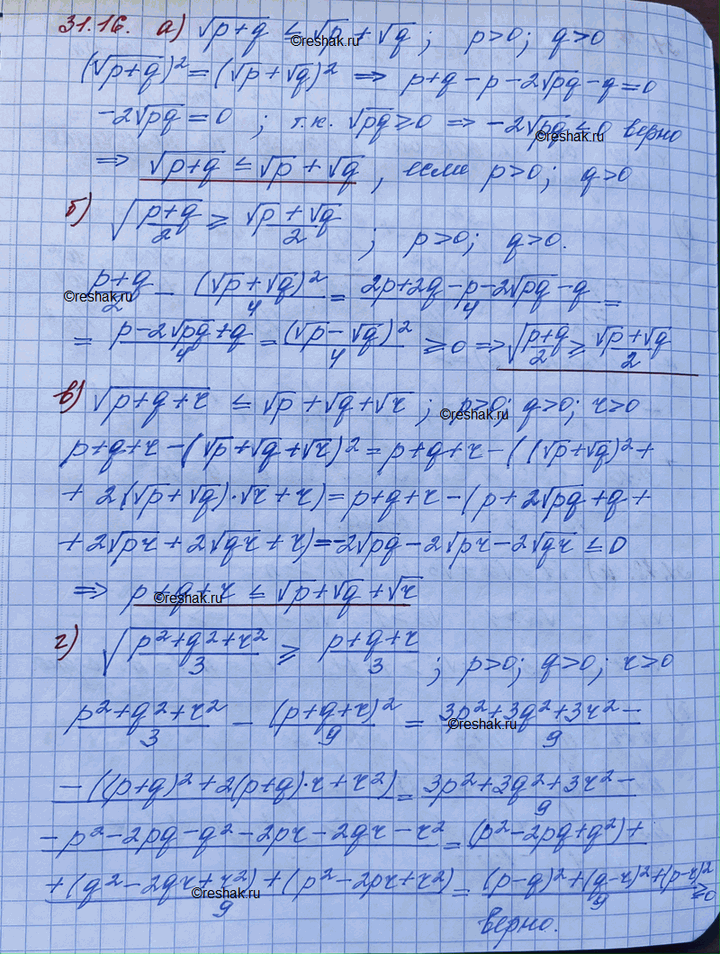 31.16. а) √(p+q) ≤ √p + √q ; p>0; q>0
(√(p+q))² = (√p+√q)² ⇒ p+q−p−2√(pq)−q=0
−2√(pq) = 0 ; т.к. √(pq) ≥ 0 ⇒ −2√(pq) ≤ 0 верно
⇒ √(p+q) ≤ √p + √q , если p>0; q>0
б) √((p+q)/2) ≥ (√p+√q)/2 ; p>0; q>0.
(p+q)/2 − (√p+√q)²/4 = (2p+2q−p−2√(pq)−q)/4 =
= (p−2√(pq)+q)/4 = (√p−√q)²/4 ≥ 0 ⇒ √((p+q)/2) ≥ (√p+√q)/2
в) √(p+q+r) ≤ √p+√q+√r ; p>0; q>0; r>0
p+q+r−(√p+√q+√r)² = p+q+r−((√p+√q)²+
+ 2(√p+√q)·√r+r) = p+q+r−(p+2√(pq)+q+
+2√(pr)+2√(qr)+r)=−2√(pq)−2√(pr)−2√(qr) ≤ 0
⇒ p+q+r ≤ √p+√q+√r
г) √((p²+q²+r²)/3) ≥ (p+q+r)/3 ; p>0; q>0; r>0
(p²+q²+r²)/3 − (p+q+r)²/9 = (3p²+3q²+3r²−)/9
−((p+q)²+2(p+q)·r+r²) = (3p²+3q²+3r²−)/9
−p²−2pq−q²−2pr−2qr−r² = (p²−2pq+q²)+
+(q²−2qr+r²)+(p²−2pr+r²)/9 = ((p−q)²+(q−r)²+(p−r)²)/9 ≥0
верно.
©reshak.ru
©reshak.ru
©reshak.ru
©reshak.ru
©reshak.ru
©reshak.ru
©reshak.ru